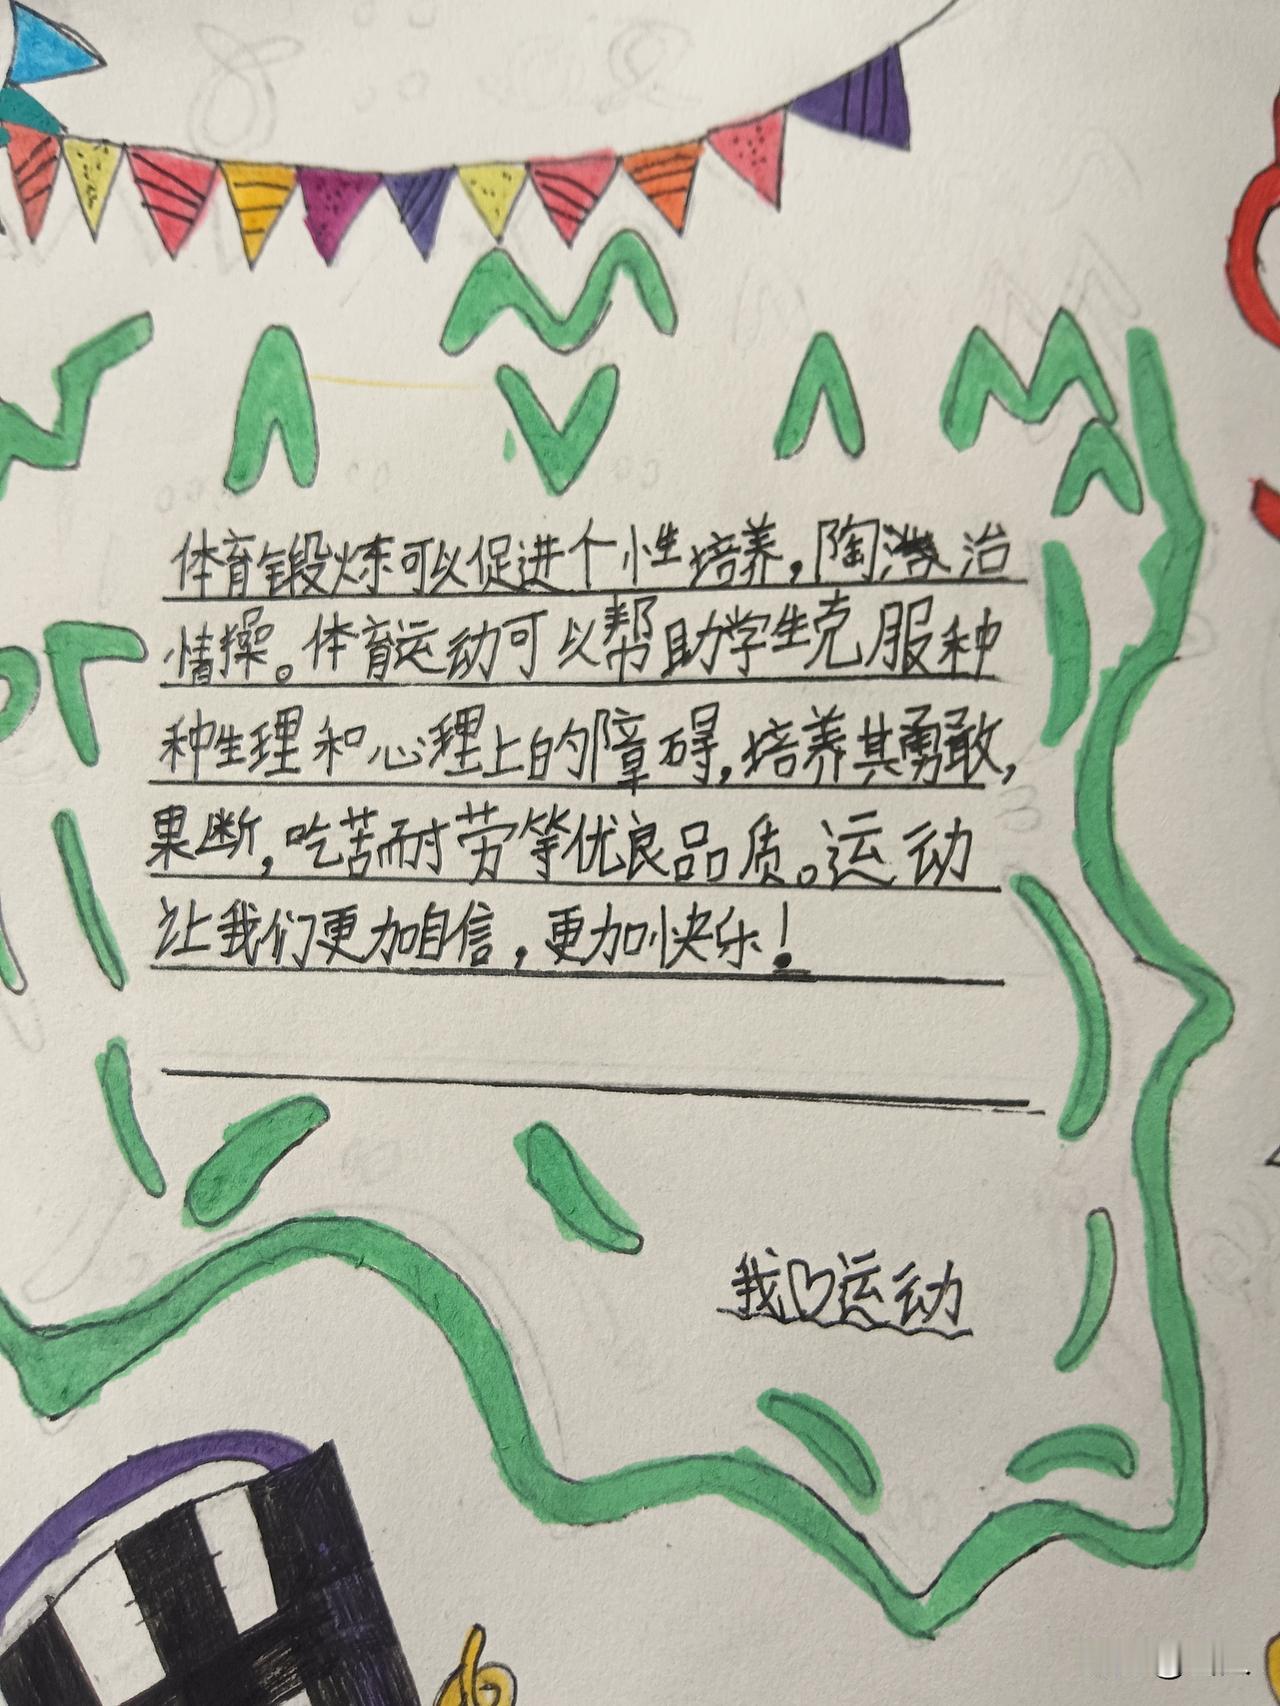 体育锻炼可以促进个性培养,陶治
情操。体育运动可以帮助学生克服种
种生理和心理上的障碍,培养其勇敢,
果断,吃苦耐劳等优良品质。运动
让我们更加自信,更加快乐!
我♡运动